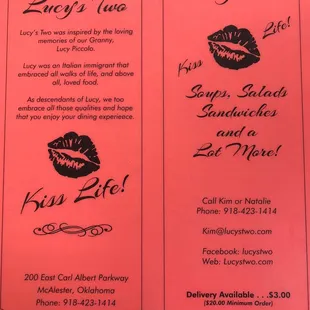 Lucy's Two
Lucy's Two was inspired by the loving
memories of our Granny,
Lucy Piccolo.
Lucy was an Italian immigrant that
embraced all walks of life, and above
all, loved food.
As descendants of Lucy, we too
embrace all those qualities and hope
that you enjoy your dining experieace.
Kiss Life!
200 East Carl Albert Parkway
McAlester, Oklahoma
Phone: 918-423-1414
Kiss Life!
Soups, Salads
Sandwiches
and a
Lot More!
Call Kim or Natalie
Phone: 918-423-1414
Kim@lucystwo.com
Facebook: lucystwo
Web: Lucystwo.com
Delivery Available . . .$3.00
($20.00 Minimum Order)